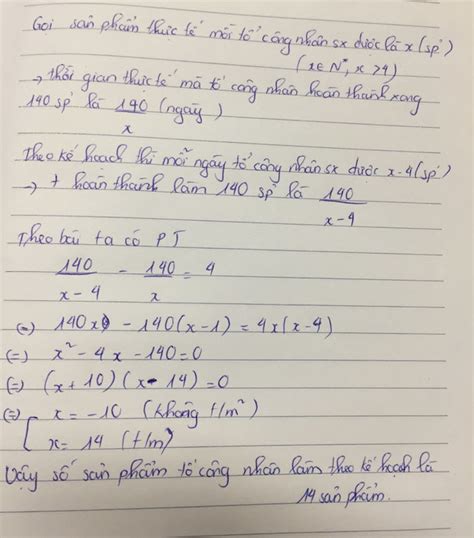 Gọi sản phẩm thực tế mỗi tổ công nhân sx được là x (sp)
(x ∈ N*, x > 4)
→ thời gian thực tế mà tổ công nhân hoàn thành xong
140 sp là 140/x (ngày)
Theo kế hoạch thì mỗi ngày tổ công nhân sx được x-4 (sp)
→ t hoàn thành làm 140 sp là 140/x-4
Theo bài ta có PT
140/x-4 - 140/x = 4
(=) 140x - 140(x-1) = 4x(x-4)
(=) x² - 4x - 140 = 0
(=) (x+10)(x-14) = 0
(=) [ x = -10 (không t/m²)
x = 14 (t/m)
Vậy số sản phẩm tổ công nhân làm theo kế hoạch là
14 sản phẩm.